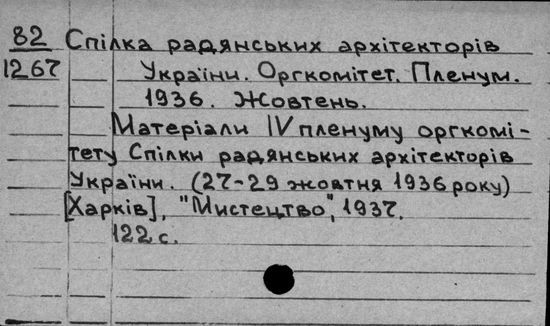 82 Спілка радянських архітекторів
1267 України. Оргкомітет. Пленум.
1936. Жовтень.
Матеріали IV пленуму оргкомі-
тету Спілки радянських архітекторів
України. (27-29 жовтня 1936 року)
[Харків], "Мистецтво", 1937.
122 с.